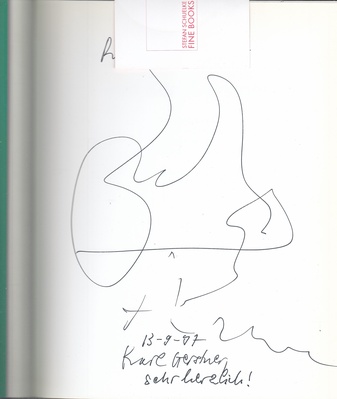 STEFAN SCHUELKE
FINE BOOKS
13-9-07
Karl Gerstner,
sehr herzlich!